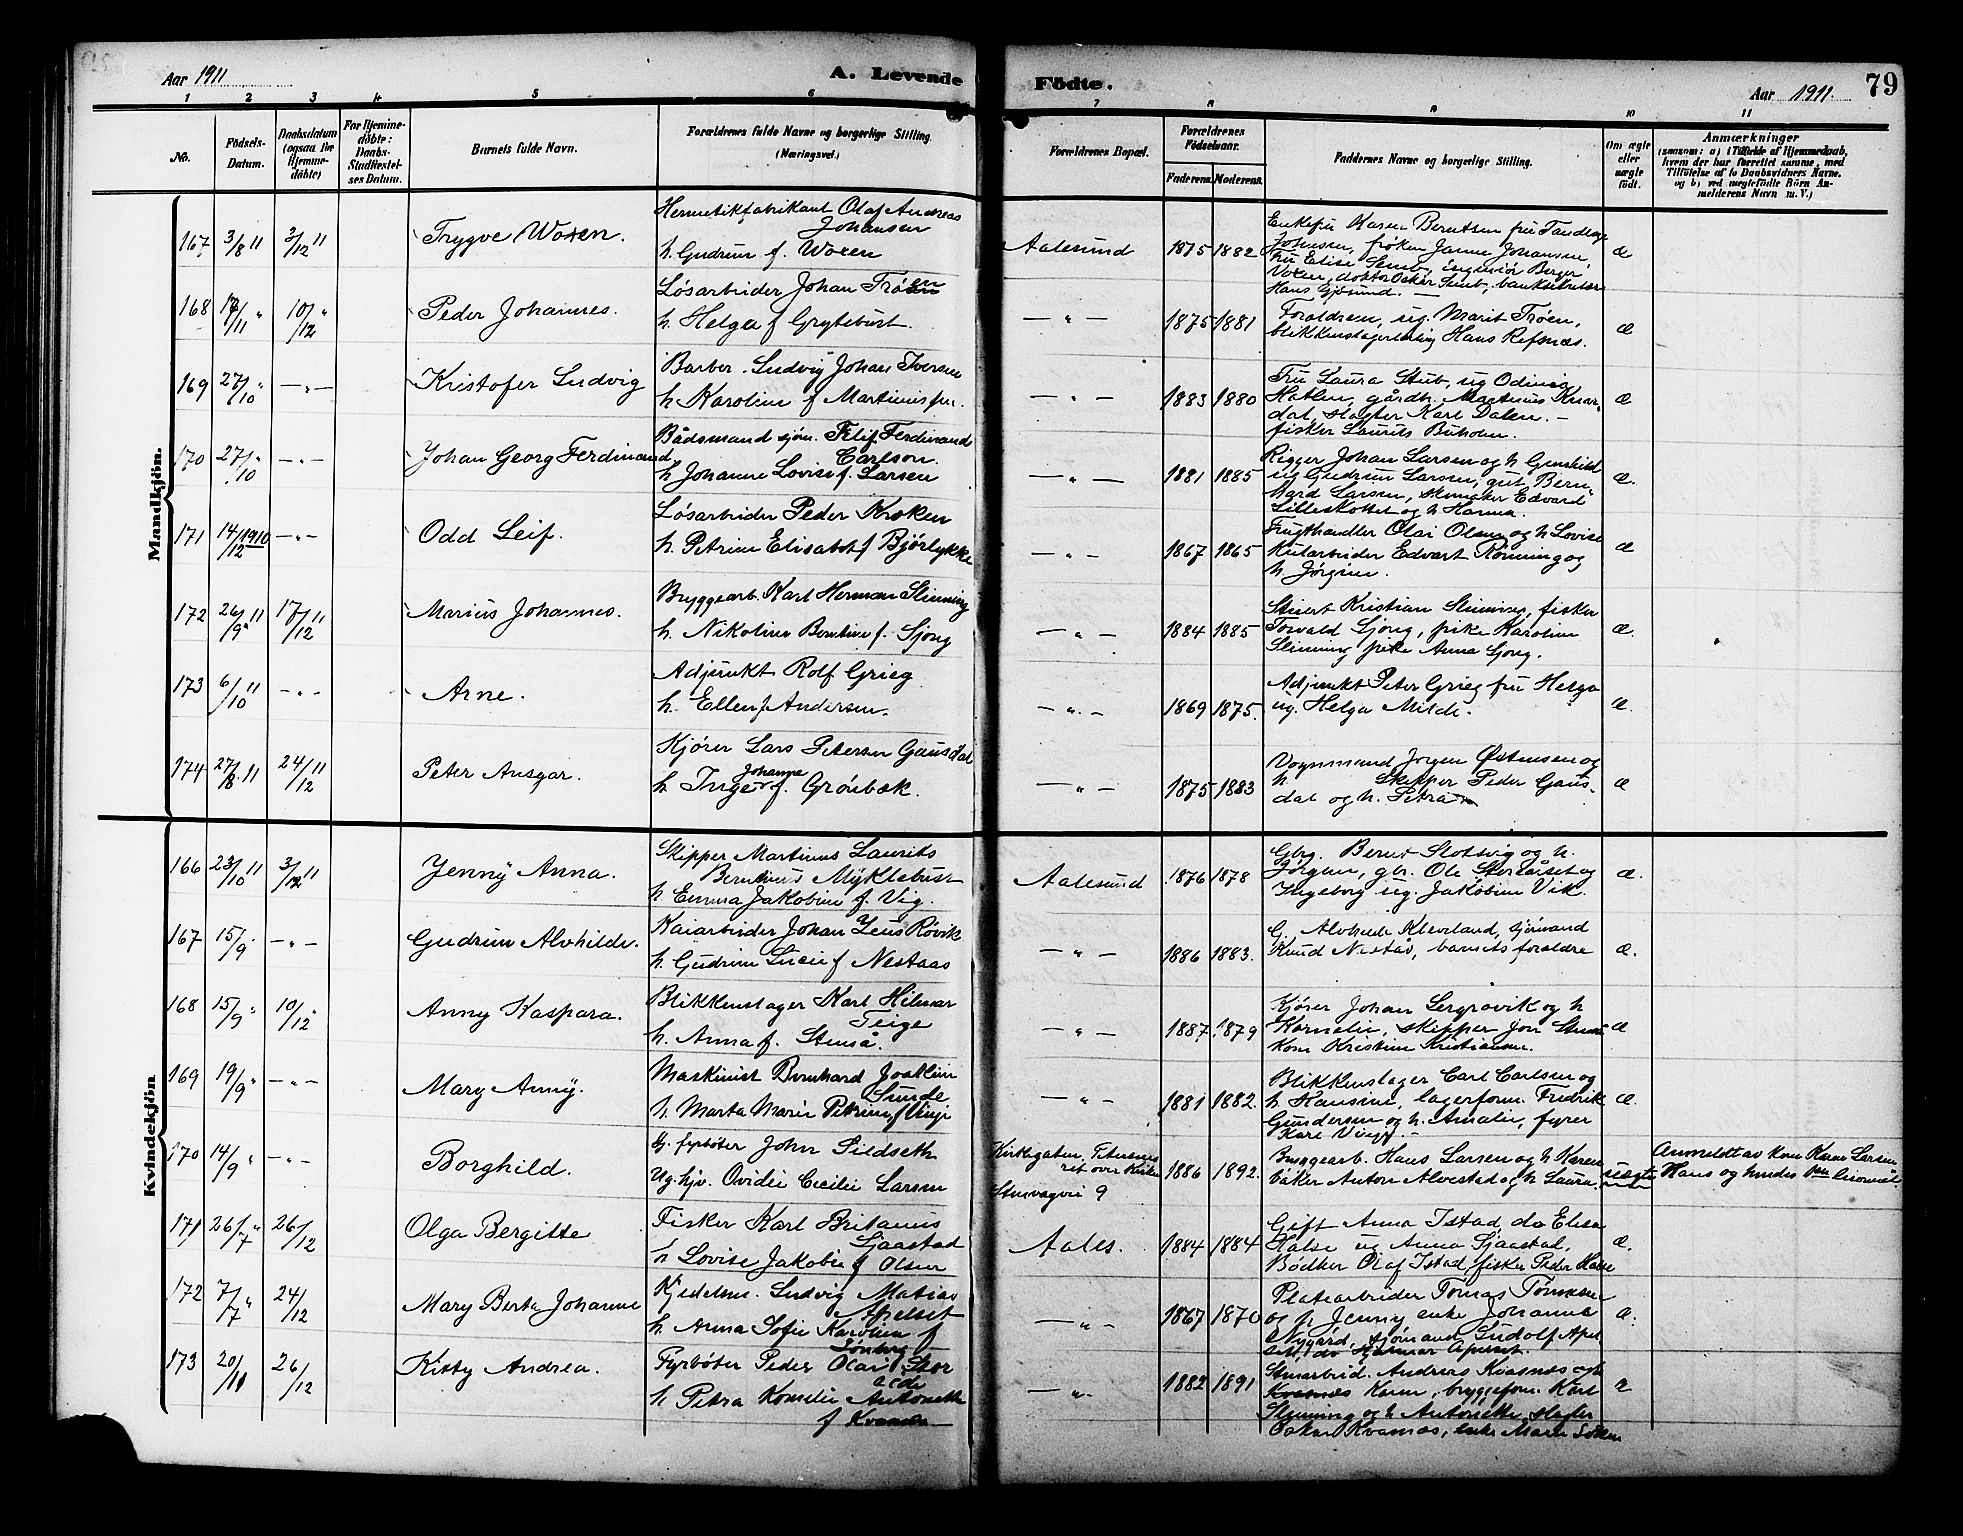 Aar 1911
A. Levende
Födte.
Aar 1911.
79
1 2 3 4 5 6 7 8 9 10 11
No.
Födsels-
Datum.
Daabsdatum
(ogsaa for
Hjemme-
döbte)
For Hjemme-
döbte:
Daabs-
Stadfæstel-
ses Datum.
Barnets fulde Navn.
Forældrenes fulde Navne og borgerlige Stilling.
(Næringsvei.)
Forældrenes Bopæl.
Forældrenes
Födselsaar.
Faderens. Moderens.
Faddernes Navne og borgerlige Stilling.
Om ægte
eller
uægte
födt.
Anmærkninger
(saasom: a) i Tilfælde af Hjemmedaab,
hvem der har forrettet samme, med
Tilföielse af to Daabsvidners Navne.
og b) ved uægtefödte Börn An-
melderens Navn m. V.)
Mandkjön.
167 3/8 11 3/12 11 Trygve Woxen.
Hermetikfabrikant Olaf Andreas
Johansen
h. Gudrun f. Woxen
Aalesund 1875 1882
Enkefru Karen Berntsen fru Tandlæge
Johansen, frøken Janne Johansen,
Fru Elise Semb, ingeniør Berger
Voxen, doktor Oskar Semb, banksekretær
Hans Gjøsund. —
æ
168 /11 " 10/12 " Peder Johannes.
Løsarbeider Johan Trøen
h. Helga f. Grytebust.
— " — 1875 1881
Forældren, ug. Marit Trøen,
blikkenslagerlærling Hans Refsnæs.
æ
169 27/10 " — " — Kristofer Ludvig
Barber. Ludvig Johan Iversen
h. Karoline f Martinus
— " — 1883 1880
Fru Laura Stub, ug Odinia
Hatlen, gårdb. Martinus
dal, slagter Karl Dalen. —
fisker Laurits Buholm.
æ
170 27/10 " — " — Johan Georg Ferdinand
Bådsmand sjøm. Filif Ferdinand
Carlson.
h Johanne Lovise f. Larsen
— " — 1881 1885
Rigger Johan Larsen og h Gunhild
ug Gudrun Larsen, gut Bern-
hard Larsen, skomaker Edvard
Lilleskottet og h Hanna.
æ.
171 14/12 1910 — " — Odd Leif.
Løsarbeider Peder Kroken
h. Petrine Elisabet f Bjørlykke
— " — 1867 1865
Frugthandler Olai Olsen og h Lovise
Kularbeider Edvart Rønning og
h Jørgine.
æ
172 26/9 11 17/12 11 Marius Johannes.
Bryggearb. Karl Herman Slinning
h. Nikoline Berntine f. Sjong
— " — 1884 1885
Stuert Kristian Slinning, fisker
Torvald Sjong, pike Karoline
Slinning pike Anna Sjong.
æ.
173 6/10 11 — " — Arne.
Adjunkt Rolf Grieg
h. Ellen f. Andersen.
— " — 1869 1875.
Adjunkt Peter Grieg fru Helga
ug. Helga Milde.
æ.
174 27/ 11 24/12 11 Peter Ansgar.
Kjører Lars Petersen Gausdal
Johanne
h. Inger f. Grønbæk.
— " — 1875 1883
Vognmand Jørgen Østensen og
h Skipper Peder Gaus-
dal og h. Petra
æ
Kvindekjön
166 23/10 11 3/12 11 Jenny Anna.
Skipper Martinus Laurits
Berntinus Myklebust
h Emma Jakobine f. Vig.
Aalesund 1876 1878
Gbrg. Slotsvig og h.
Jørgine, gbr. Ole og
Ingeborg ug. Jakobine Vik
æ.
167 15/9 " — " — Gudrun Alvhilde.
Kaiarbeider Johan Jens Røvik
h. Gudrun Lucie f Nestaas
— " — 1886 1883.
G. Alvhilde Kleveland, sjømand
Knud Nestås, barnets forældre
æ.
168 15/9 " 10/12 " Anny Kaspara.
Blikkenslager Karl Hilmar
Teige
h. Anna f.
— " — 1887 1879
Kjører Johan og h
Kornelie, skipper Jon
kone Kristine Kristiansen.
æ
169 19/9 " — " — Mary Anny.
Maskinist Bernhard Joakim
Sunde
h. Marta Marie Petrine f
— " — 1881 1882.
Blikkenslager Carl Carlsen og
h Hansine, lagerform. Fredrik
Gundersen og h. Amalie, fyrer
Karl —
æ.
170 14/9 " — " — Borghild.
g. fyrbøter John Sildseth
Ug. hjv. Ovidie Cecilie Larsen
Kirkegaten, Petersens
ret over Kirken
9
1886 1892.
Bryggearb. Hans Larsen og h Karen
baker Anton Alvestad og h Laura.
uægte
Anmeldt av kone Karen Larsen
Hans og hendes
171 26/7 " 26/12 Olga Bergitte
Fisker Karl Britanus
Sjaastad
h Lovise Jakobine f Olsen
Aales. 1884 1884
Gift Anna Istad, do Elisa
Halse ug Anna Sjaastad,
Bødker Olaf Istad, fisker Peder Halse
æ.
172 7/7 " 24/12 Mary Berta Johanne
Kjedelsm. Ludvig Matias
Apelset
h. Anna Sofie Karoline f
— " — 1867 1870
Platearbeider Tomas Tønnesen
og h Jenny enke Johanna
Nygård, sjømand Ludolf Apel-
set, do Hjalmar Apelset.
æ.
173 20/11 26/12 Kitty Andrea.
Fyrbøter Peder Olai Stor
eide
h Petra Kornelie Antonette
f Kvasnes
— " — 1882 1891
Andreas Kvasnes og h
Karen, bryggeform. Karl
Slinning og h Antonette, slagter
Oskar Kvasnes, enke Marie
æ